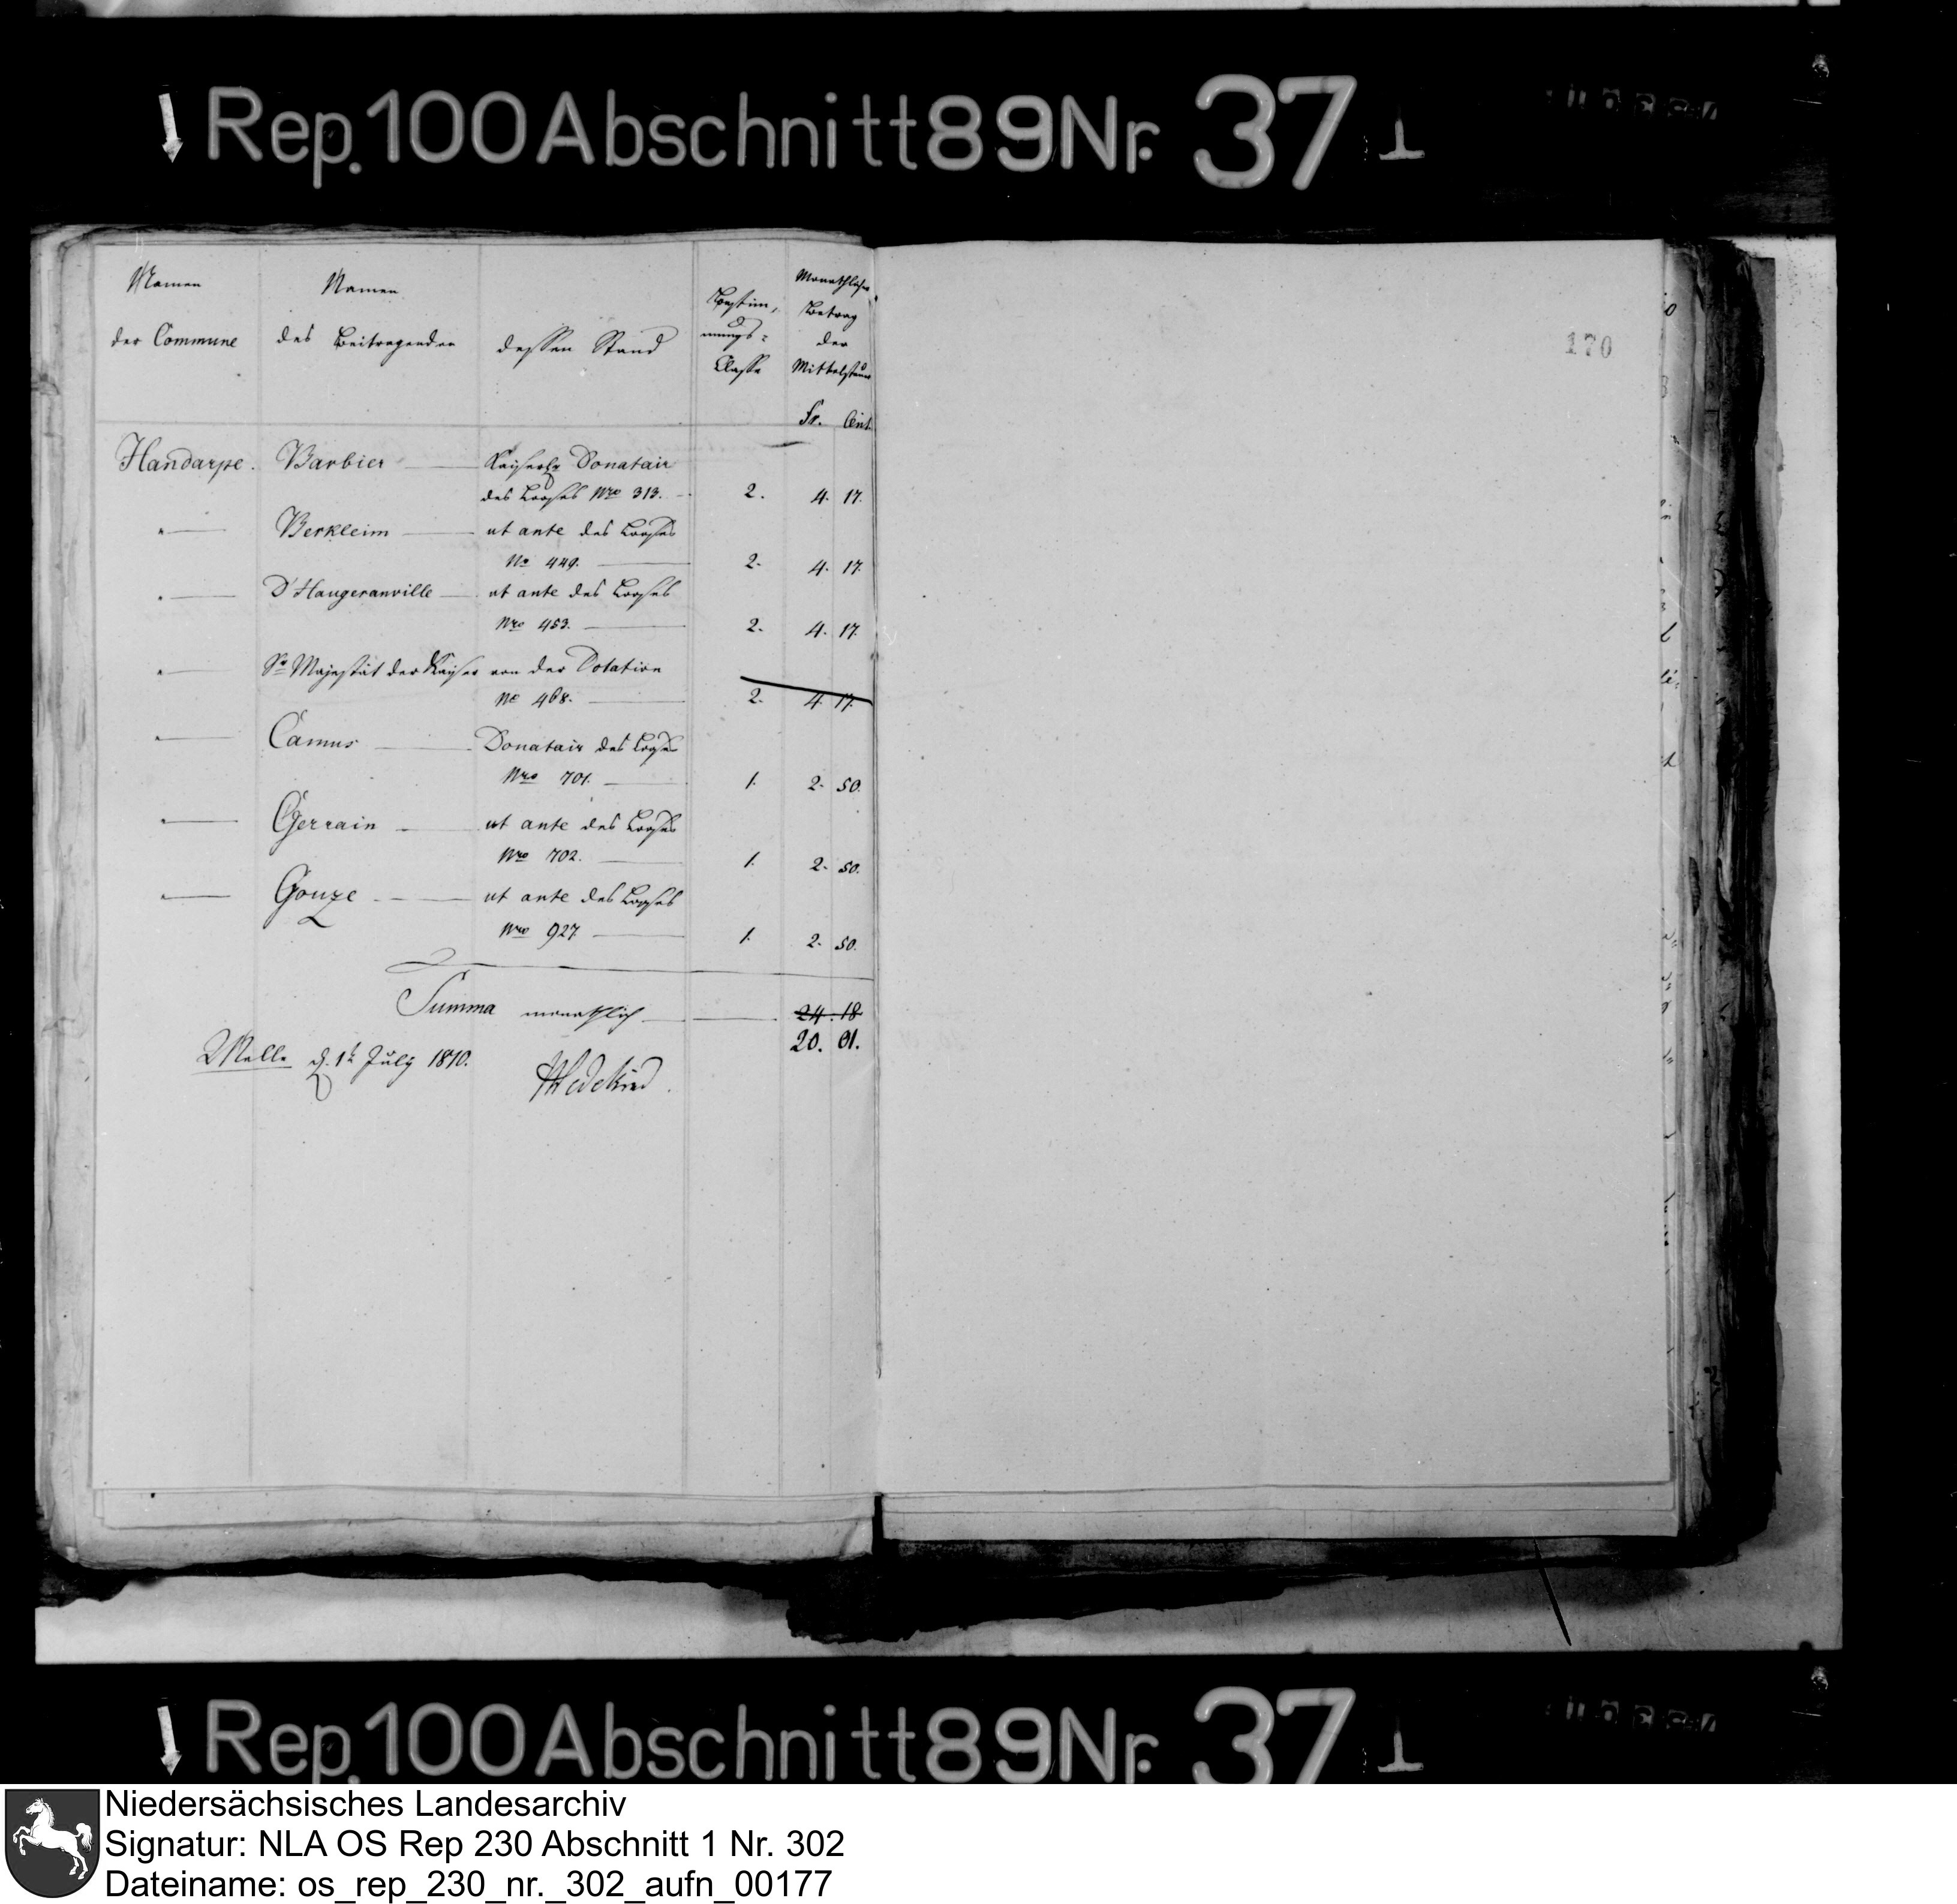 Rep. 100 Abschnitt 89 Nr. 37 I
170
Namen der Commune
Namen des Beitragenden
dessen Stand
Bestim,mungs=Classe
Monathlicher Betrag der Mittelsteuer
Fr. Cent.
Handarpe. Barbier Kayserlr Donatair
des Looses Nro 313. 2. 4. 17.
" Berkleim ut ante des Looses
No 449. 2. 4. 17.
" D'Haugeranville ut ante des Looses
Nro 453. 2. 4. 17.
" Sr Majestät der Kayser von der Dotation
No 468. 2. 4. 17.
" Camus Donatair des Looses
Nro 701. 1. 2. 50.
" Gerrain ut ante des Looses
Nro 702. 1. 2. 50.
" Gouze ut ante des Looses
Nro 927. 1. 2. 50.
Summa monathlich 24. 18.
20. 01.
Melle d. 1t July 1810. Wedekind
Rep. 100 Abschnitt 89 Nr. 37 I
Niedersächsisches Landesarchiv
Signatur: NLA OS Rep 230 Abschnitt 1 Nr. 302
Dateiname: os_rep_230_nr._302_aufn_00177